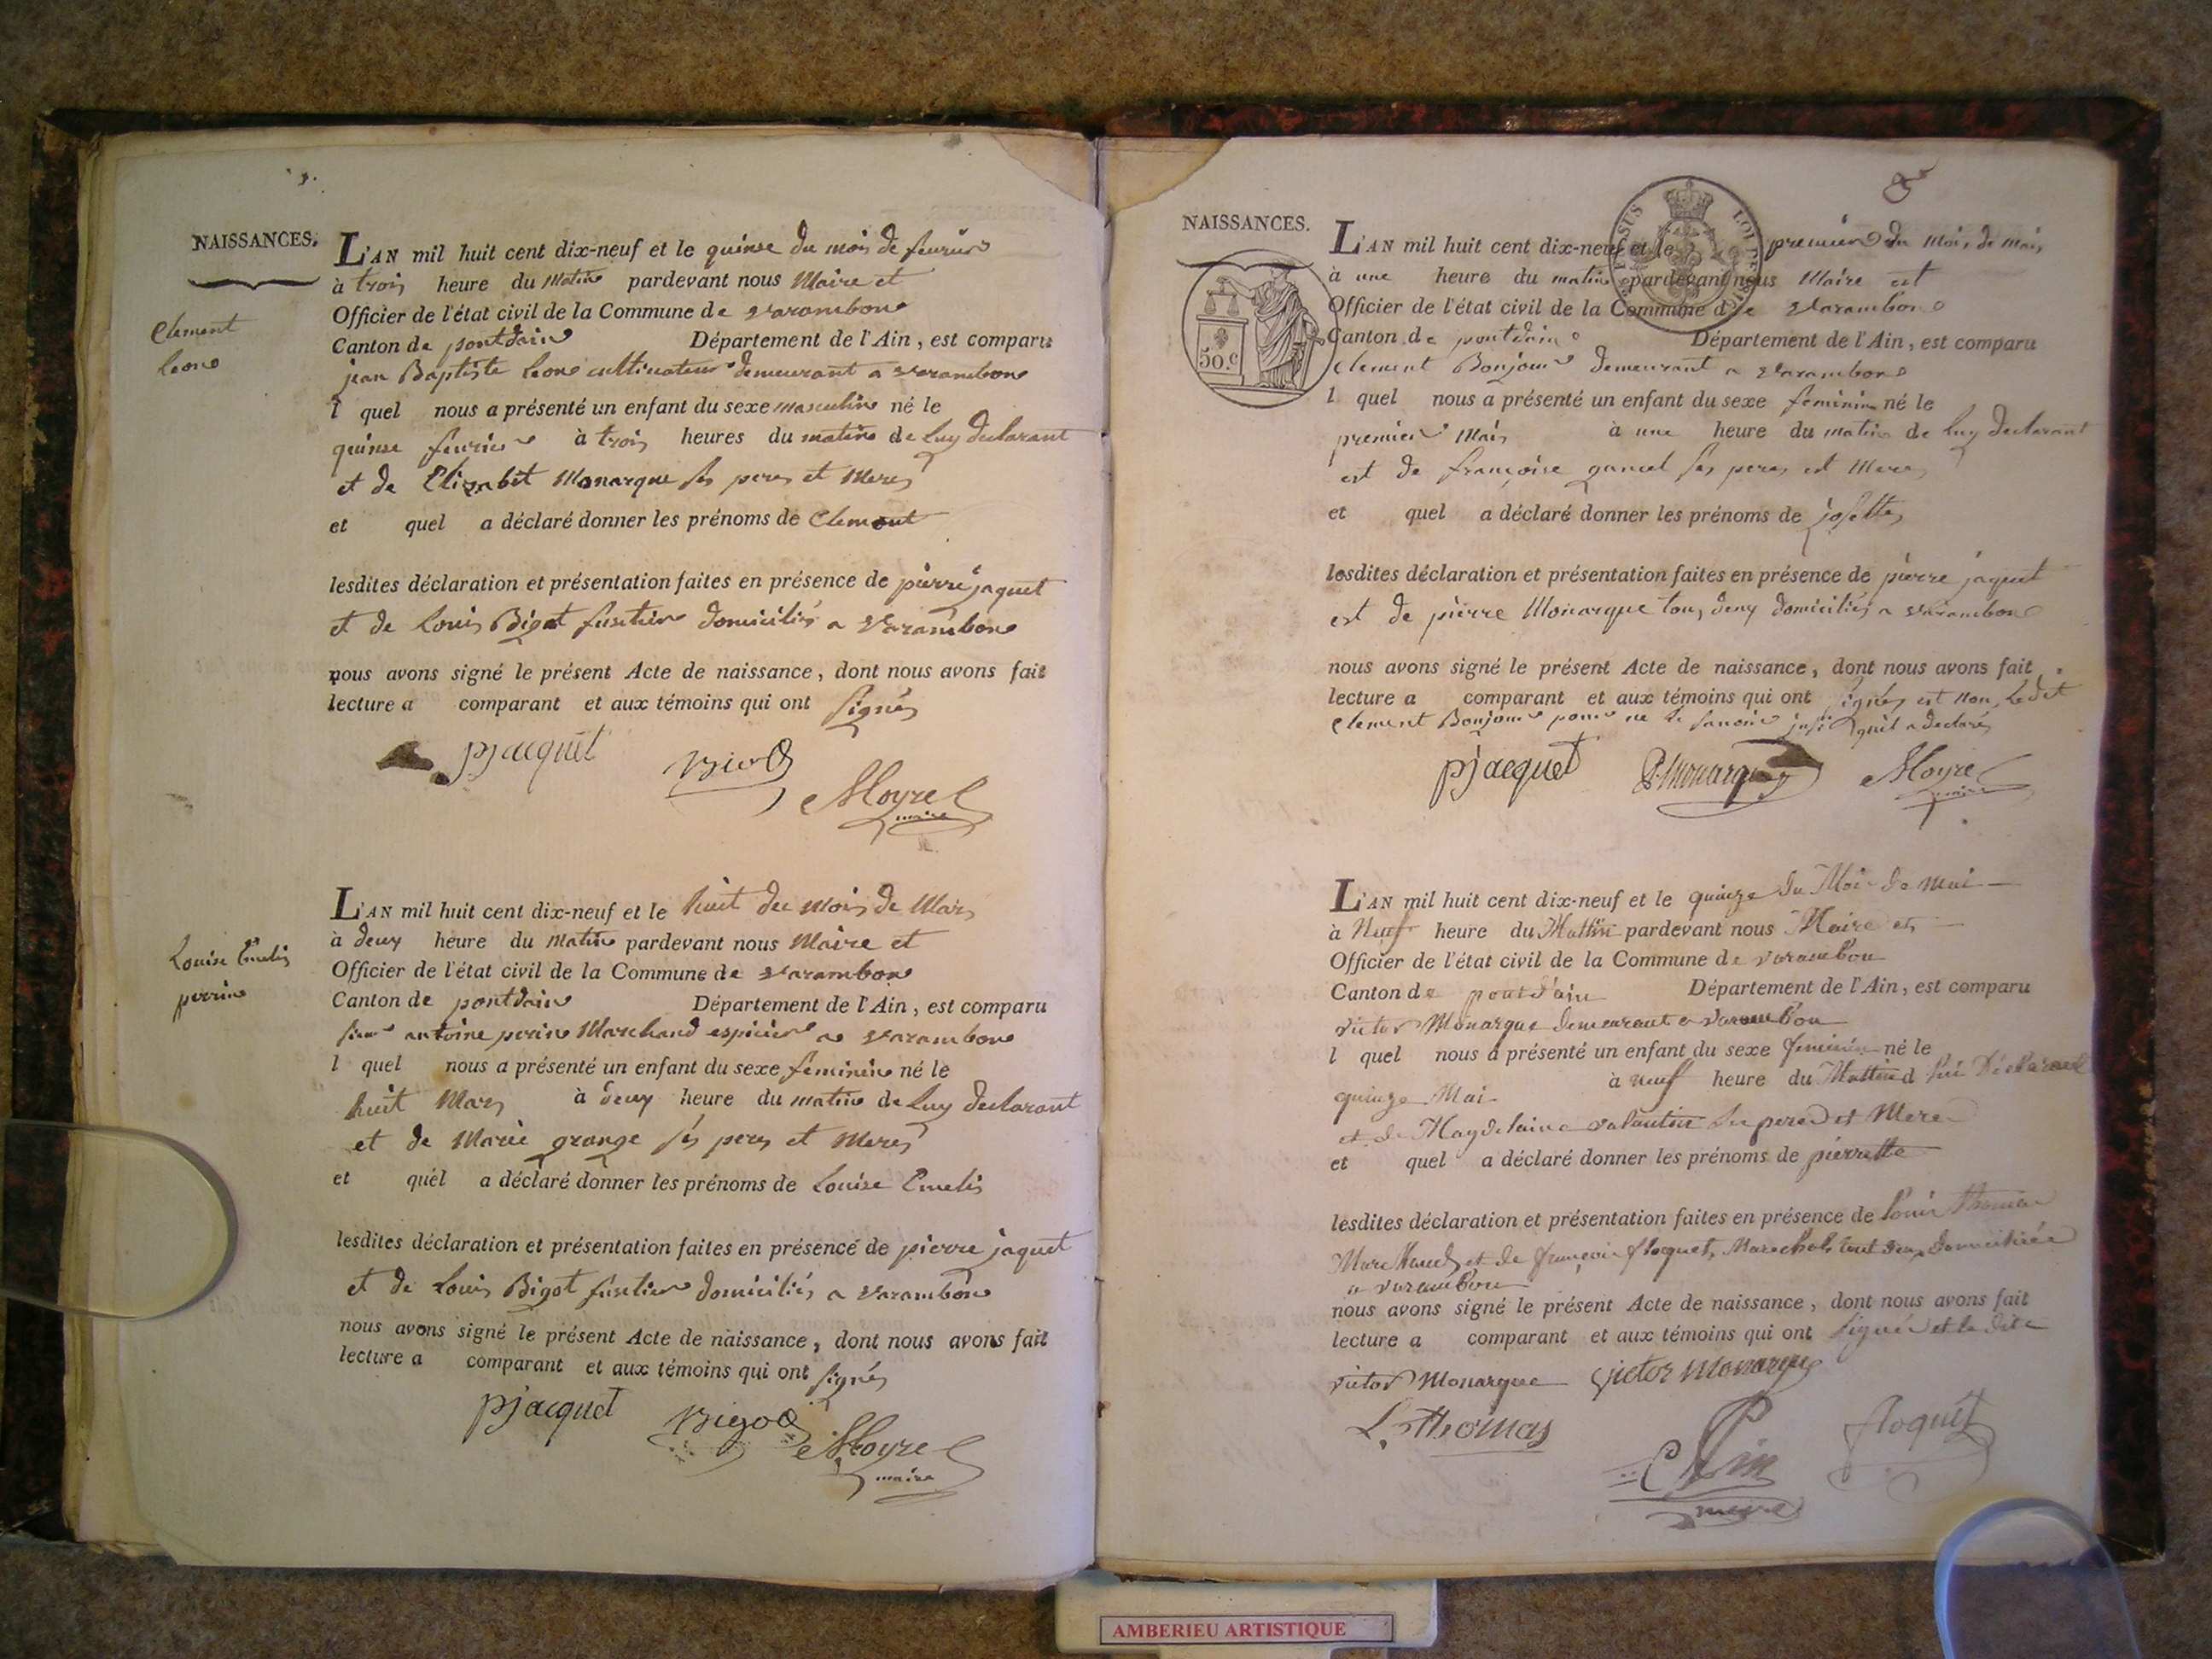 NAISSANCES.
Clement
Leon
L'AN mil huit cent dix-neuf et le quinse du mois de feurier
à trois heure du matin pardevant nous Maire et
Officier de l'état civil de la Commune de varambon
Canton de pontdain Département de l'Ain, est comparu
jean Baptiste Leon cultivateur demeurant a varambon
l quel nous a présenté un enfant du sexe masculin né le
quinse feurier à trois heures du matin de luy declarant
et de Elizabit Monarque ses peres et Meres
et quel a déclaré donner les prénoms de Clement
lesdites déclaration et présentation faites en présence de pierre jaquet
et de Louis Bigot fustier domiciliés a varambon
nous avons signé le présent Acte de naissance, dont nous avons fait
lecture a comparant et aux témoins qui ont signés
pjacquet Moyret
maire
Louise Emelis
perrin
L'AN mil huit cent dix-neuf et le huit du mois de Mars
à deux heure du matin pardevant nous Maire et
Officier de l'état civil de la Commune de varambon
Canton de pontdain Département de l'Ain, est comparu
sieur antoine perin Marchand espicier a varambon
l quel nous a présenté un enfant du sexe feminin né le
huit Mars à deux heure du matin de luy declarant
et de Marie grange ses peres et Meres
et quel a déclaré donner les prénoms de Louise Emelis
lesdites déclaration et présentation faites en présence de pierre jaquet
et de Louis Bigot fustier domiciliés a varambon
nous avons signé le présent Acte de naissance, dont nous avons fait
lecture a comparant et aux témoins qui ont signés
pjacquet Bigot Moyret
maire
8
NAISSANCES.
50.c
L'AN mil huit cent dix-neuf et le premier du mois de mai
à une heure du matin pardevant nous Maire est
Officier de l'état civil de la Commune de varambon
Canton de pontdain Département de l'Ain, est comparu
Clement Bonjour demeurant a varambon
l quel nous a présenté un enfant du sexe feminin né le
premier Mai à une heure du matin de luy declarant
est de françoise ses peres est Meres
et quel a déclaré donner les prénoms de josette
lesdites déclaration et présentation faites en présence de pierre jaquet
est de pierre Monarque tous deux domiciliés a varambon
nous avons signé le présent Acte de naissance, dont nous avons fait
lecture a comparant et aux témoins qui ont signés est non ledit
Clement Bonjour pour ne le sanoir quil a declaré
pjacquet P. Monarque Moyret
maire
L'AN mil huit cent dix-neuf et le quinze du Moi de mai
à Neuf heure du Mattin pardevant nous Maire et
Officier de l'état civil de la Commune de varambon
Canton de pont d'ain Département de l'Ain, est comparu
victor Monarque demeurant a varambon
l quel nous a présenté un enfant du sexe feminin né le
quinze Mai à neuf heure du Mattin d lui Déclarant
et de Magdelaine valantin pere et Mere
et quel a déclaré donner les prénoms de pierrette
lesdites déclaration et présentation faites en présence de Louis thomas
Marchand et de françois floquet, Marechal tout deux domicilié
a varambon
nous avons signé le présent Acte de naissance, dont nous avons fait
lecture a comparant et aux témoins qui ont signé et le dit
victor Monarque victor Monarque
Ls thomas floquet
AMBERIEU ARTISTIQUE